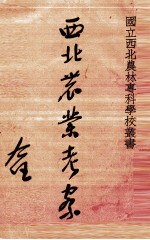 國立西北農林專科學校叢書
西北農業考察